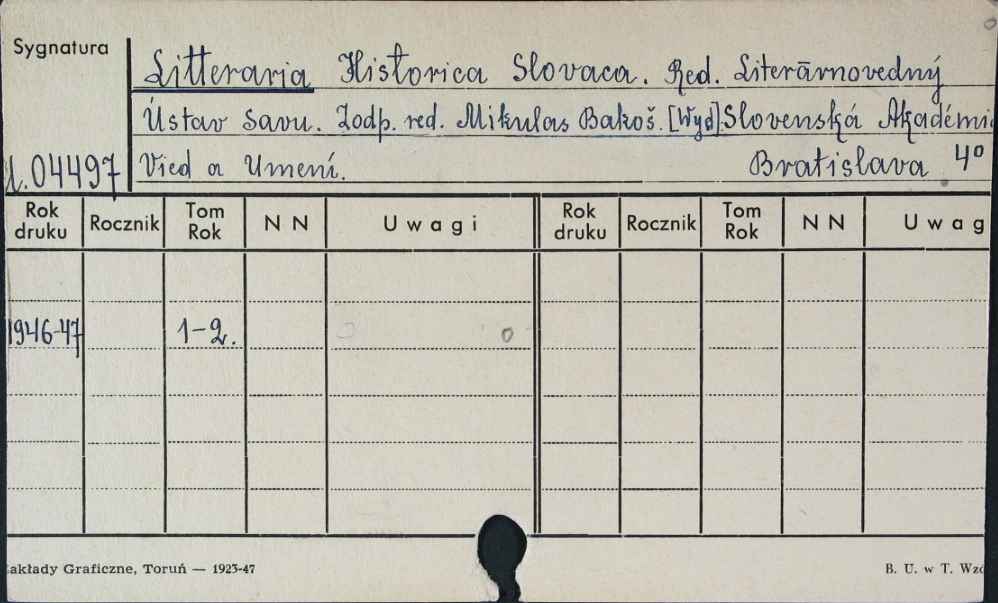 Sygnatura
Litteraria Historica Slovaca. Red. Literárnovedný
Ústav Savu. Zodp. red. Mikulas Bakoš. [Wyd] Slovenská Akadémi
04497 Vied a Umení. Bratislava 4º
Rok druku Rocznik Tom Rok N N Uwagi Rok druku Rocznik Tom Rok N N Uwag
1946-47 1-2.
akłady Graficzne, Toruń — 1923-47 B. U. w T. Wzó